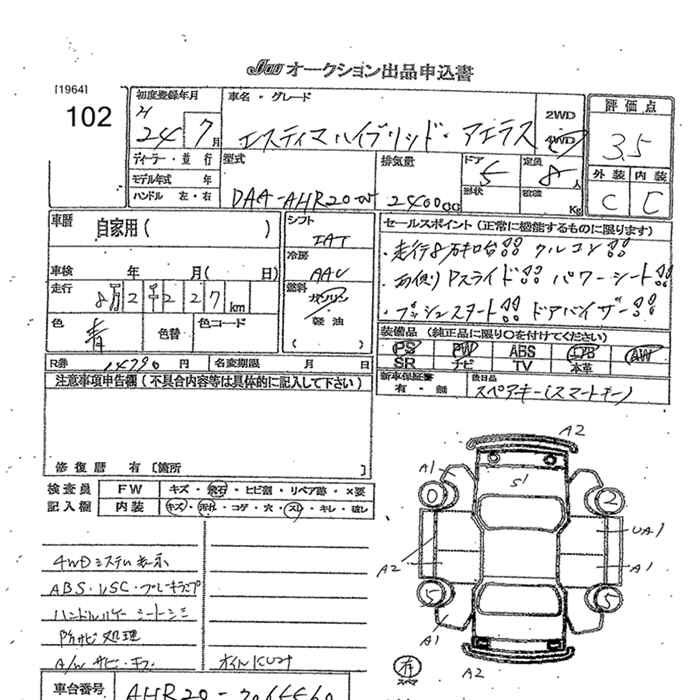 JU オークション出品申込書
[1964]
102
初度登録年月
24 7月
車名・グレード
エスティマハイブリッド・アエラス
2WD
4WD
評価点
3.5
外装 内装
C C
ディーラー・並行
モデル年式 年
ハンドル 左・右
型式
DAA-AHR20W
排気量
2400cc
ドア 5
形状
定員 8人
積載 Kg
車歴 自家用( )
シフト
IAT
車検 年 月( 日)
冷房
AAC
走行 8万2千227km
燃料
ガソリン
軽油
( )
色 青 色替 色コード
セールスポイント(正常に機能するものに限ります)
・走行8万キロ台!! クルコン!!
・両側Pスライド!! パワーシート!!
・プッシュスタート!! ドアバイザー!!
装備品(純正品に限り○を付けてください)
PS PW ABS AW
SR ナビ TV 本革
R券 14790円 名変期限 月 日
新車保証書
有・無
後日品
スペアキー(スマートキー)
注意事項申告欄(不具合内容等は具体的に記入して下さい)
修復歴 有 [箇所 ]
検査員
記入欄
FW キズ・飛石・ヒビ割・リペア跡・×要
内装 キズ・汚れ・コゲ・穴・スレ・キレ・破レ
4WDシステム表示
ABS・VSC・ブレーキランプ
防サビ処理
A/Wサビ・キズ
A2
A1
S1
0
2
UA1
A2
A1
5
5
A1
A2
有
スペア
車台番号
AHR20-